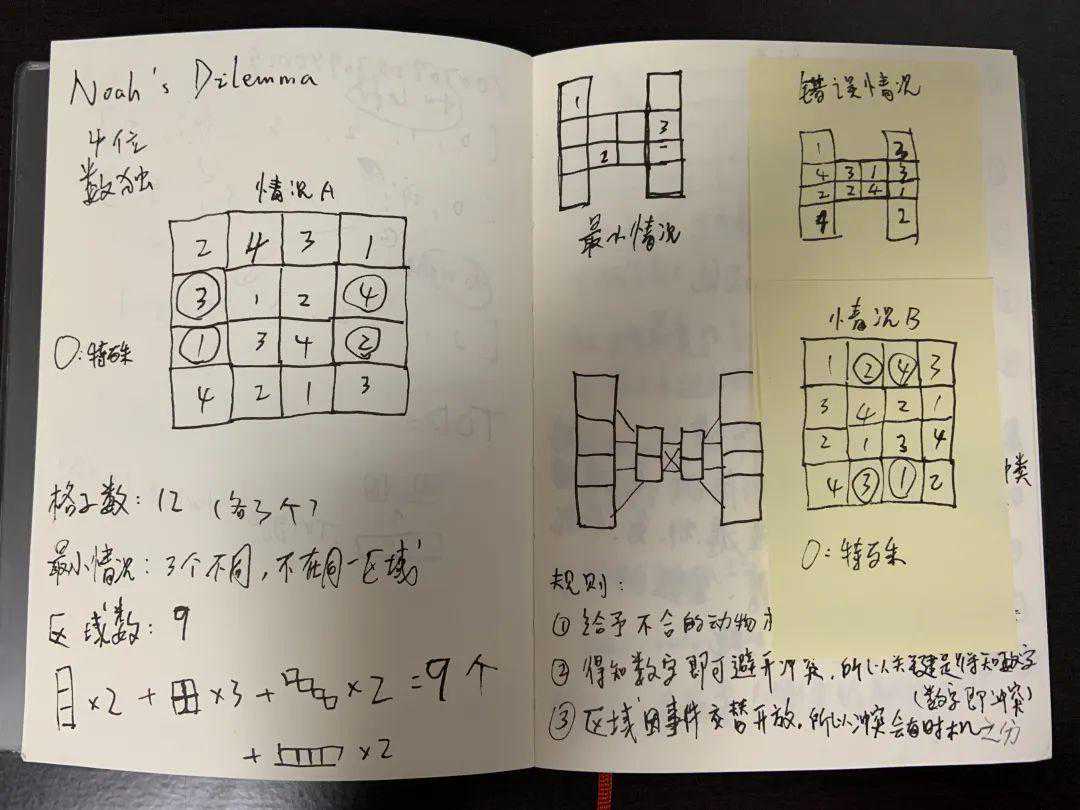 Noah's Dilemma
4位
数独
情况A
2 4 3 1
3 1 2 4
1 3 4 2
4 2 1 3
O:特殊
格子数:12 (各3个)
最小情况:3个不同,不在同一区域
区域数:9
×2 + ×3 + ×2 = 9个
+ ×2
1
3
2
最小情况
错误情况
1 3
4 3 1 3
2 2 4 1
4 2
情况B
1 2 4 3
3 4 2 1
2 1 3 4
4 3 1 2
O:特殊
类
规则:
① 给予不合的动物
② 得知数字即可避开冲突,所以关键是得知数字
(数字即冲突)
③ 区域因事件交替开放,所以冲突会有时机之分